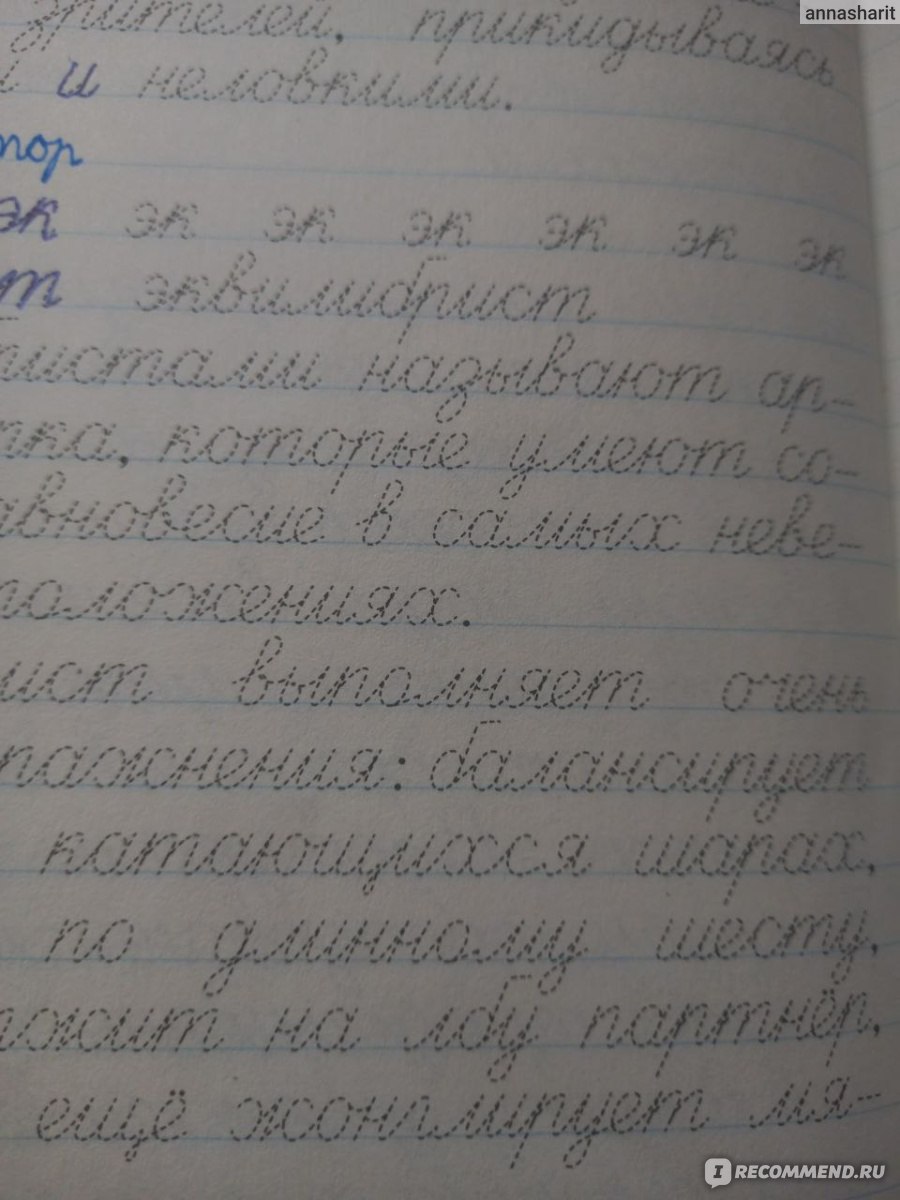 annasharit
зрителей, прикидываясь
и неловкими.
тор
эк эк эк эк эк эк эк
т эквилибрист
истами называют ар-
ка, которые умеют со-
авновесие в самых неве-
положениях.
ист выполняет очень
пражнения: балансирует
катающихся шарах,
по длинному шесту,
ржит на лбу партнёр,
ещё жонглирует мя-
IRECOMMEND.RU